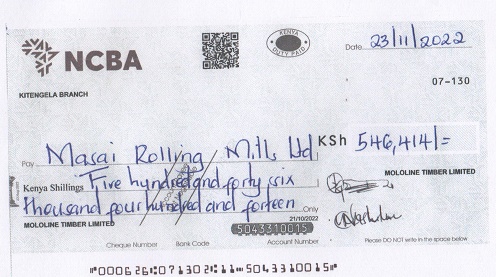 NCBA
KENYA
DUTY PAID
Date 23/11/2022
07-130
KITENGELA BRANCH
Pay Masai Rolling Mills Ltd KSh 546,414/=
Kenya Shillings Five hundred and forty six
thousand four hundred and forteen Only
MOLOLINE TIMBER LIMITED
21/10/2022
MOLOLINE TIMBER LIMITED
5043310015
Cheque Number Bank Code Account Number Please DO NOT write in the space below
"000626⑆071302⑆11⑉5043310015"